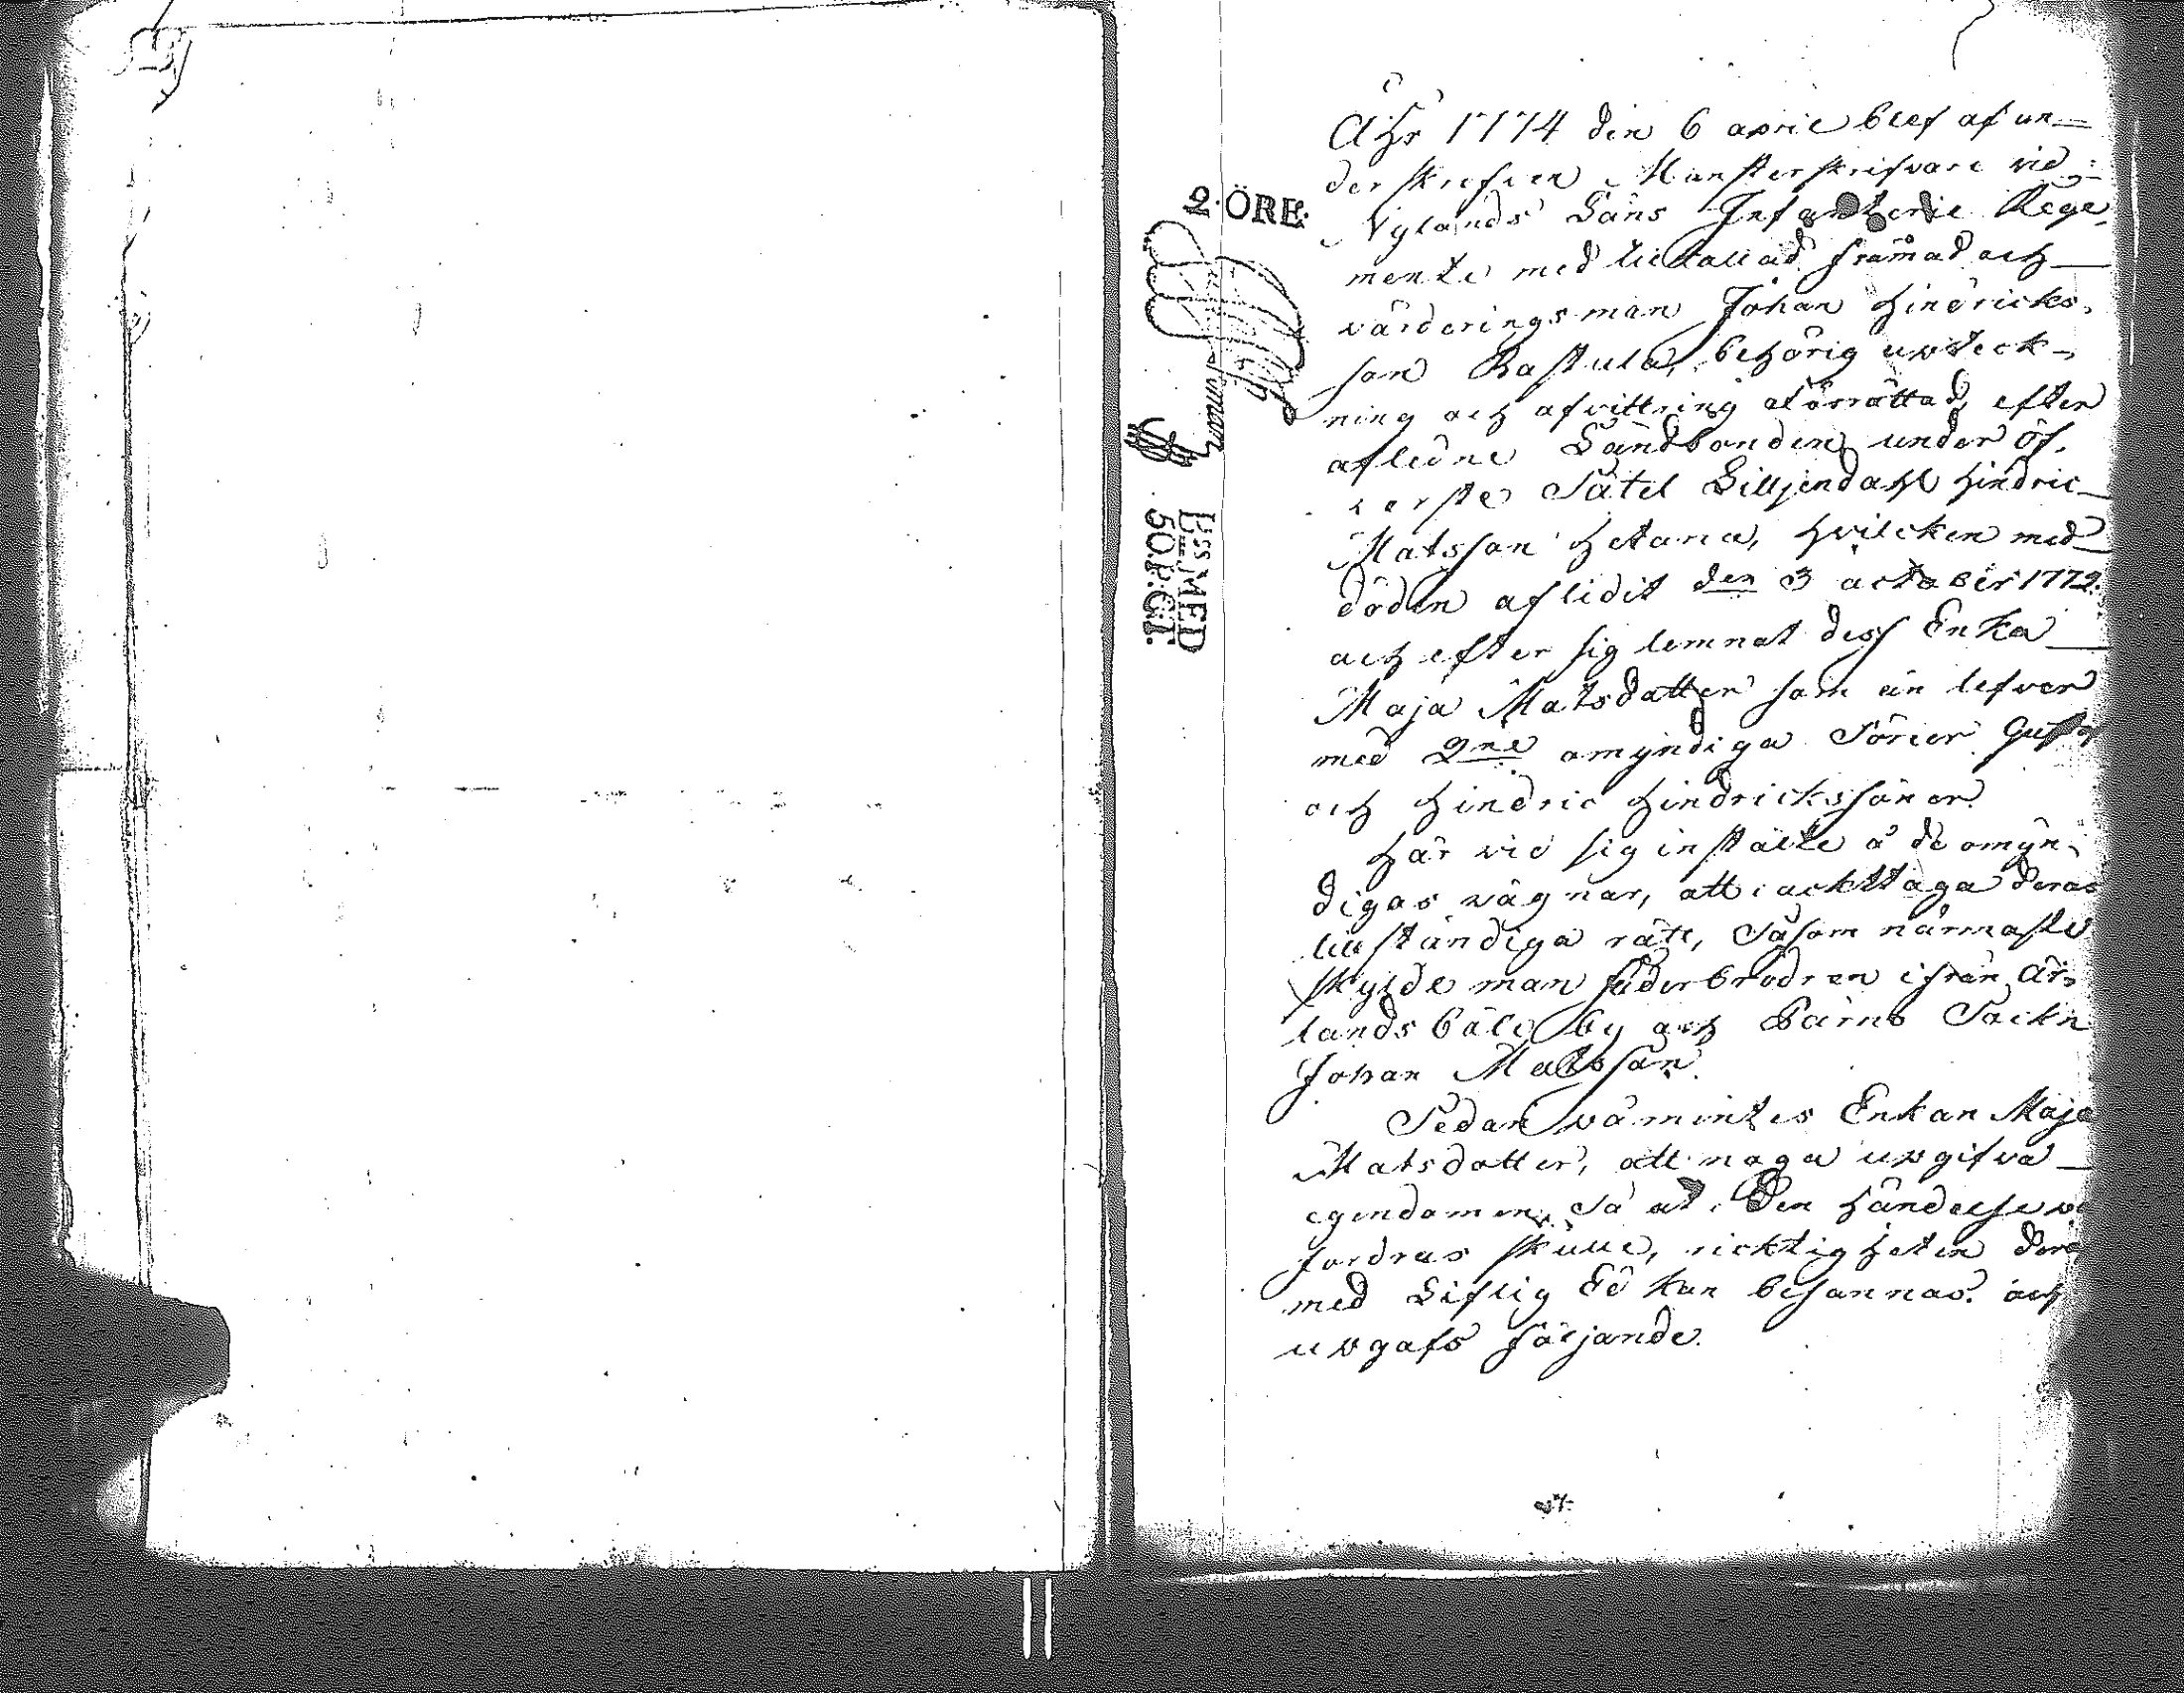 2·ÖRE.
Åhr 1774 den 6 april blef af un-
derskrefven Mönsterskrifvare vid
Nylands Läns Infanterie Rege-
mente med tilkallad främad och
värderingsman Johan Hindricks-
son Rastula, behörig upteck-
ning och afvittring förrättad, efter
afledne Landbonden under öf-
verste Sätet Lilljendahl Hindric
Matsson Hetana, hvilcken med
döden aflidit den 3 october 1772.
och efter sig lemnat dess Enka
Maja Matsdotter som än lefver
med 2ne omyndiga Söner Gustaf
och Hindric Hindrickssöner.
Här vid sig instälte å de omyn-
digas vägnar, att i ackttaga deras
tilständiga rätt, Såsom närmaste
skylde man faderbrodren ifrån Är-
landsböle by och Pärno Sockn
Johan Matsson.
Sedan påmintes Enkan Maja
Matsdotter, att noga upgifva
egendomen, Så at i den händelse
fordras skulle, ricktigheten
med Liflig Ed kan besannas. och
upgafs följande.
MED
50.P:CT.